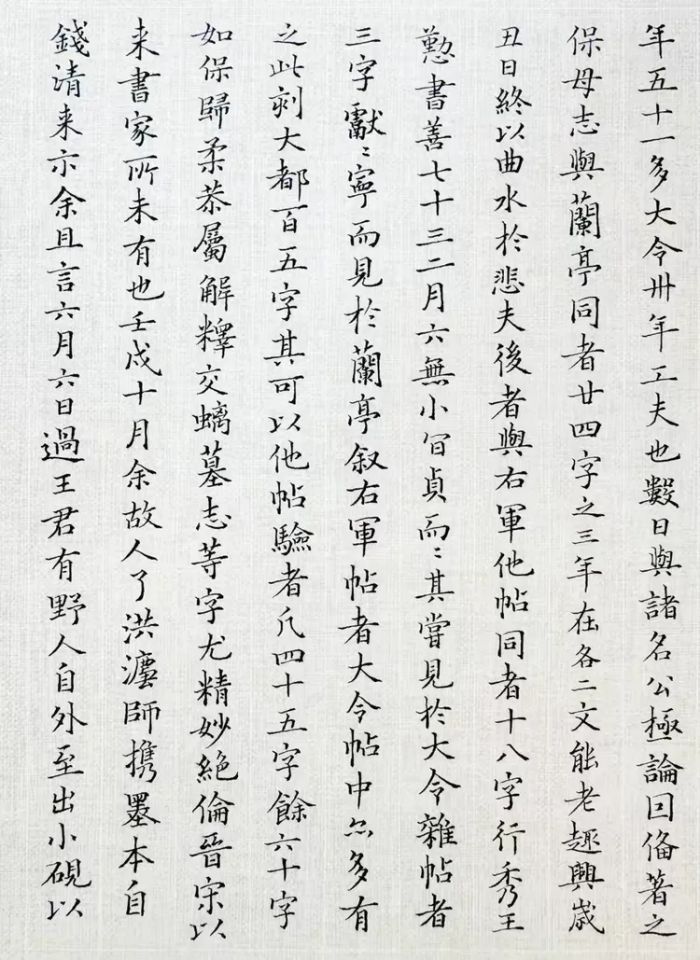 年五十一多大令卅年工夫也數日與諸名公極論因俻著之
保母志與蘭亭同者廿四字之三年在各二文能老趣興歲
丑日終以曲水於悲夫後者與右軍他帖同者十八字行秀王
懃書善七十三二月六無小冝貞而〻其嘗見於大令雜帖者
三字獻〻寧而見於蘭亭叙右軍帖者大令帖中亦多有
之此刻大都百五字其可以他帖驗者凡四十五字餘六十字
如保歸柔恭屬解釋交螭墓志等字尤精妙絕倫晉宋以
来書家所未有也壬戌十月余故人了洪灋師携墨本自
錢清来示余且言六月六日過王君有野人自外至出小硯以